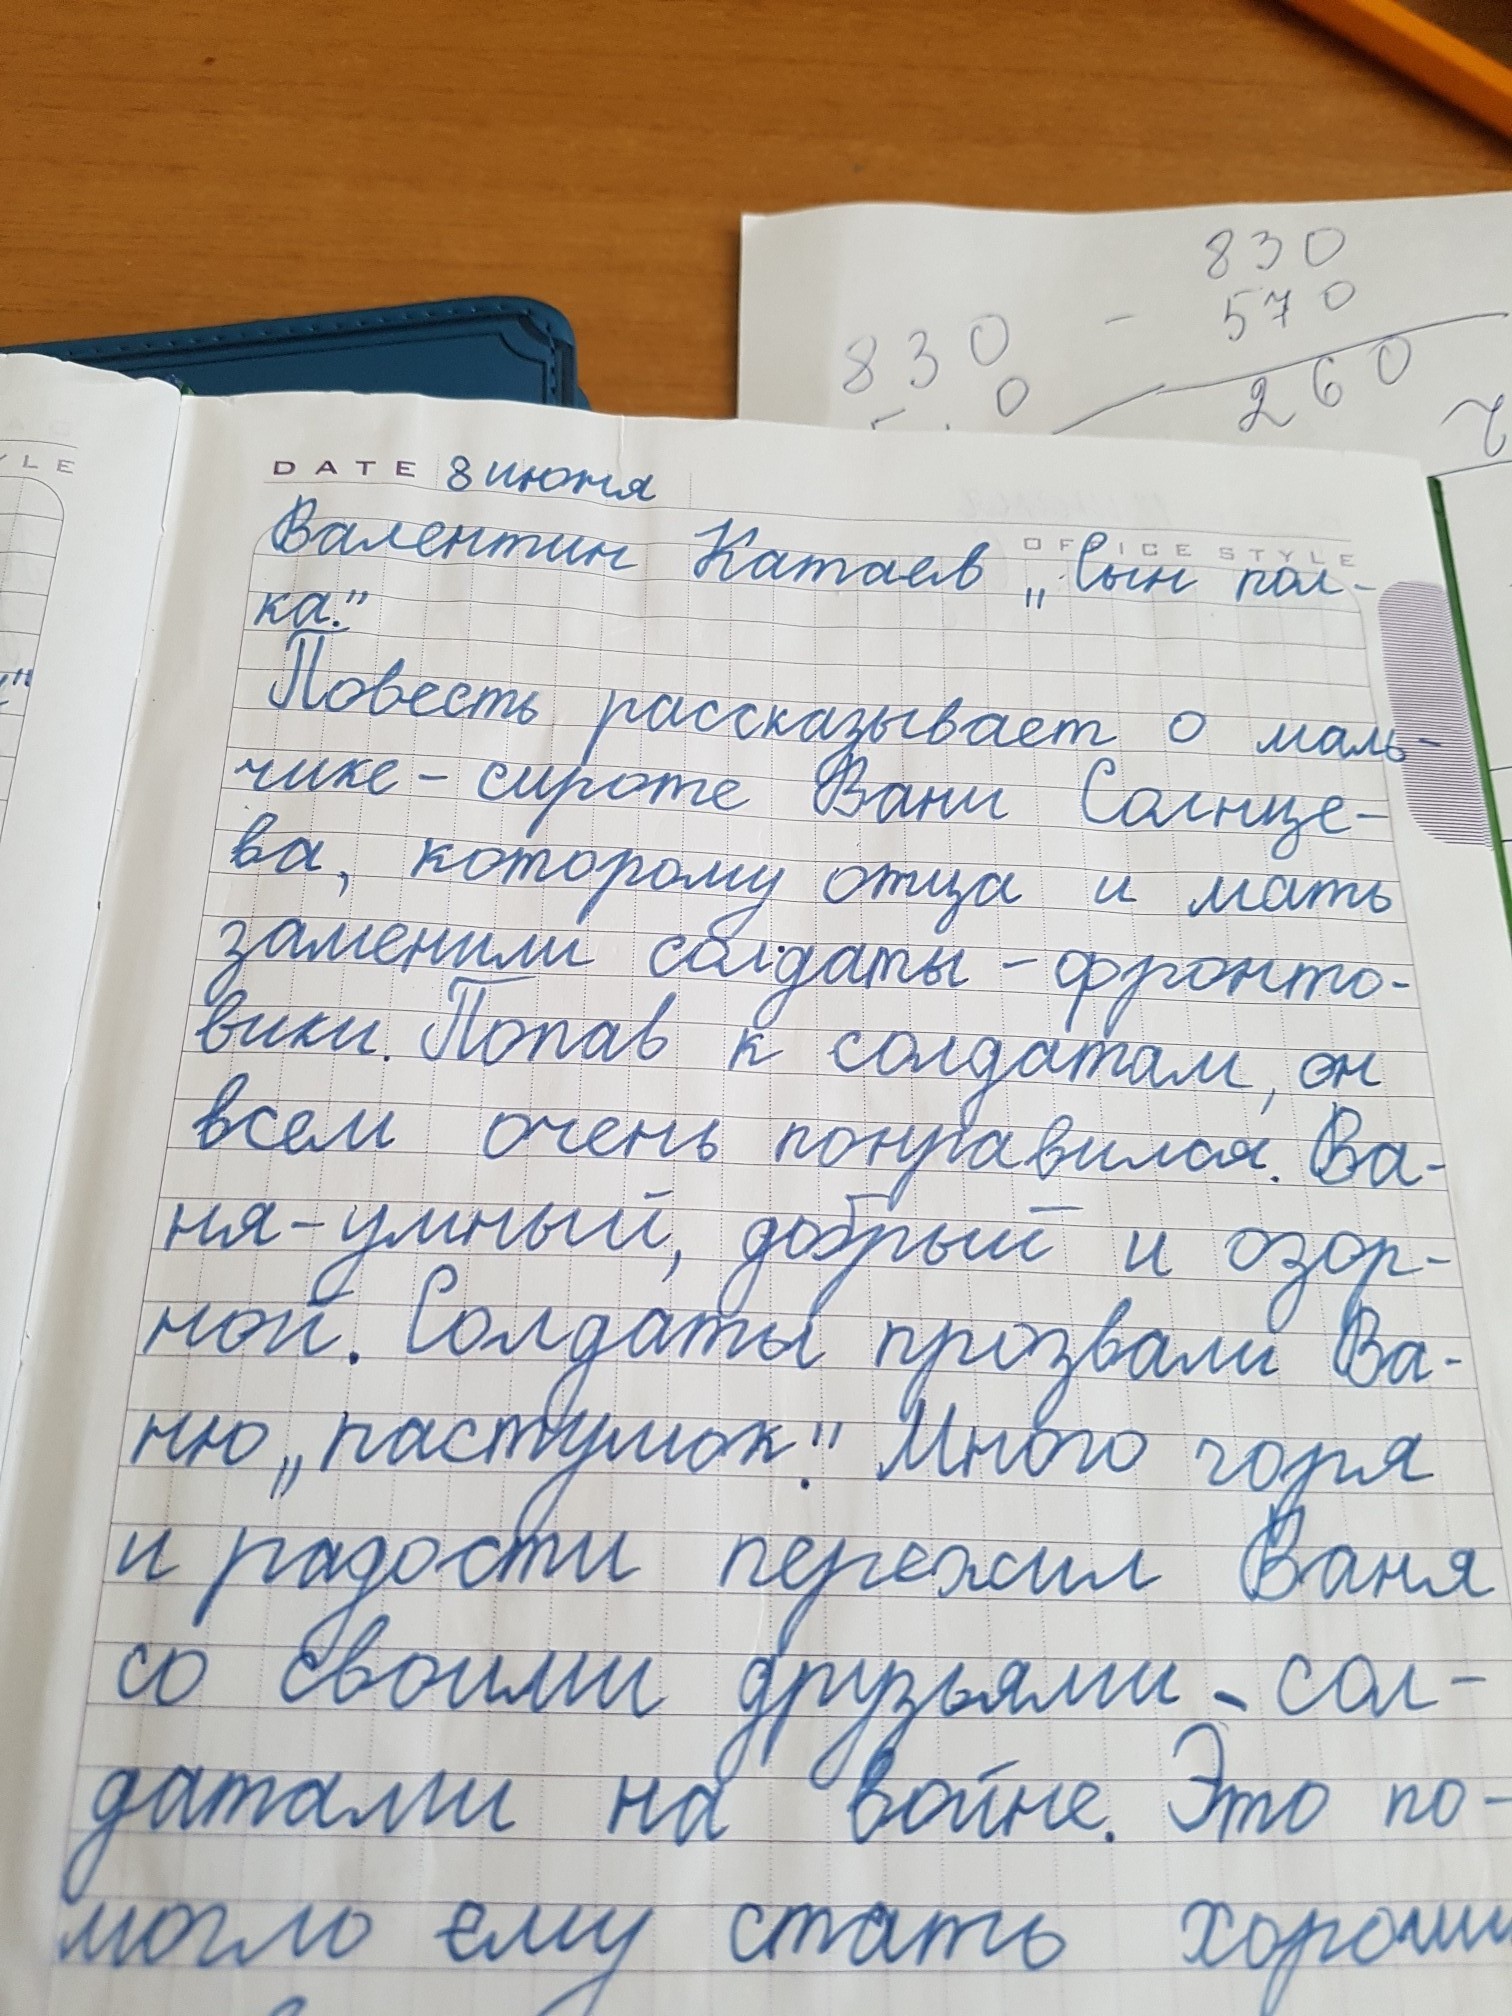 830
- 570
260
830
0
YLE
DATE 8 июня
OFFICE STYLE
Валентин Катаев „Сын пол-
ка."
Повесть рассказывает о маль-
чике-сироте Вани Солнце-
ва, которому отца и мать
заменили солдаты-фронто-
вики. Попав к солдатам, он
всем очень понравился. Ва-
ня-умный, добрый и озор-
ной. Солдаты прозвали Ва-
ню „пастушок." Много горя
и радости пережил Ваня
со своими друзьями-сол-
датами на войне. Это по-
могло ему стать хорошим